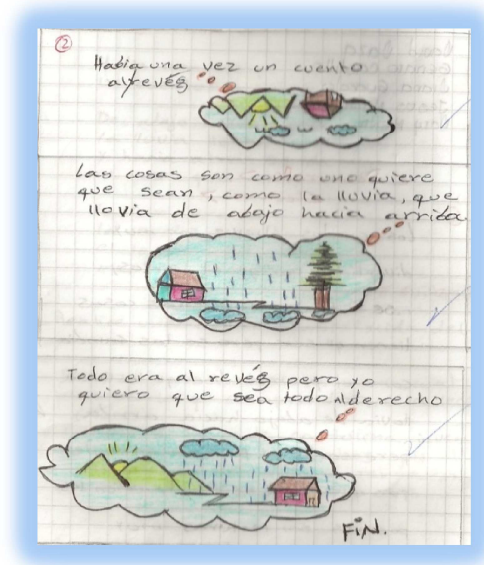 2
Habia una vez un cuento
alrevés
Las cosas son como uno quiere
que sean, como la lluvia, que
llovia de abajo hacia arriba
Todo era al revés pero yo
quiero que sea todo alderecho
FiN.